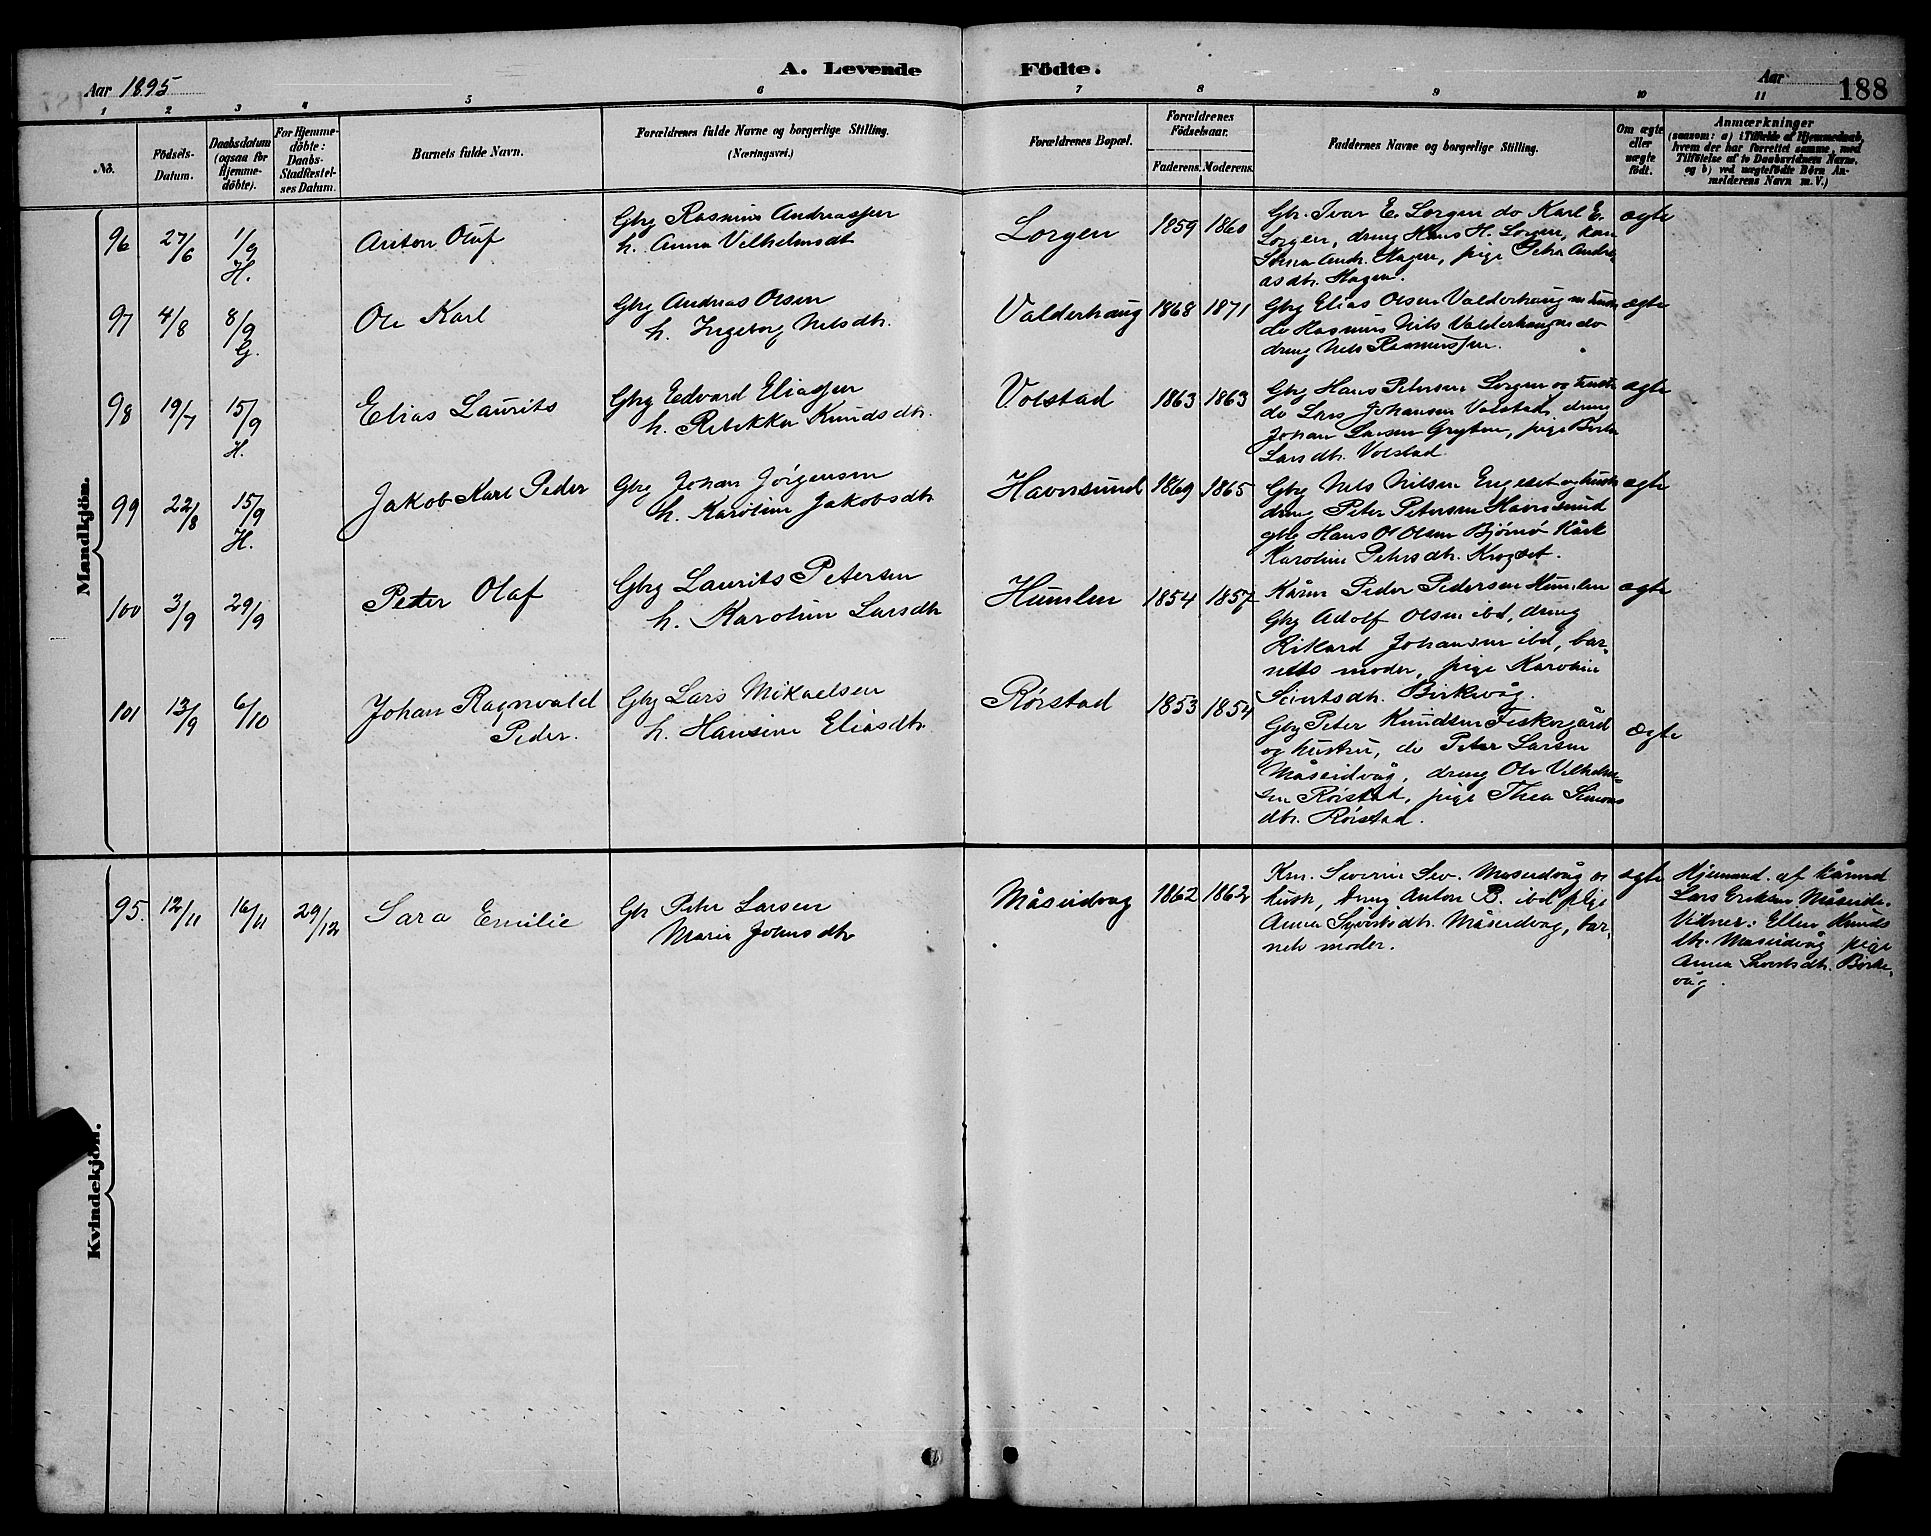 Aar 1895 A. Levende Födte. Aar 188
1 2 3 4 5 6 7 8 9 10 11
No. Födsels-Datum. Daabsdatum (ogsaa for Hjemme-döbte). For Hjemme-döbte: Daabs-Stadfæstel-ses Datum. Barnets fulde Navn. Forældrenes fulde Navne og borgerlige Stilling. (Næringsvei.) Forældrenes Bopæl. Forældrenes Födselsaar. Faderens. Moderens. Faddernes Navne og borgerlige Stilling. Om ægte eller uægte födt. Anmærkninger (saasom: a) i Tilfælde af Hjemmedaab, hvem der har forrettet samme, med Tilföielse af to Daabsvidners Navne, og b) ved uægtefödte Börn Anmelderens Navn m. V.)
Mandkjön.
96 27/6 1/9 H. Anton Oluf
Gbrg Rasmus Andreassen
h. Anna Vilhelmsdt
Lorgen 1859 1860
Gbr. Ivar E. Lorgen do Karl E.
Lorgen, dreng Hans H. Lorgen, kone
Andr. Hagen, pige Petra Andre
asdtr. Hagen.
ægte
97 4/8 8/9 G. Ole Karl
Gbrg Andreas Olsen
h. Ingeborg Nelsdtr.
Valderhaug 1868 1871
Gbrg Elias Olsen Valderhaug m hustr
do Rasmus Nils Valderhaug m do
dreng Nels Rasmussen.
ægte
98 19/7 15/9 H. Elias Laurits
Gbrg Edvard Eliassen
h. Rebekka Knudsdtr.
Volstad 1863 1863
Gbrg Hans Petersen Lorgen og hustr
do Lars Johansen Volstad, dreng
Johan Larsen Gryten, pige Berte
Larsdtr. Volstad
ægte
99 22/8 15/9 H. Jakob Karl Peder
Gbrg Johan Jørgensen
h. Karoline Jakobsdtr
Havnsund 1869 1865
Gbrg Nels Nilsen Engeset og hustr
dreng Peter Petersen Havnsund
gbr Hans O Olsen Bjørnø
Karoline Petersdtr. Krogset.
ægte
100 3/9 29/9 Peter Olaf
Gbrg Laurits Petersen
h. Karoline Larsdtr
Humlen 1854 1857
Kårm Peder Pedersen Humlen
Gbrg Adolf Olsen ibd, dreng
Rikard Johansen ibd, bar-
nets moder, pige Karoline
Sivertsdtr. Birkevåg.
ægte
101 13/9 6/10 Johan Ragnvald
Peder.
Gbrg Lars Mikaelsen
h. Hansine Eliasdtr
Rørstad 1853 1854
Gbrg Peter Knudsen Fiskergård
og hustru, do Peter Larsen
Måseidvåg, dreng Ole Vilhelm-
sen Rørstad, pige Thea Simons
dtr. Rørstad.
Ægte
Kvindekjön.
95. 12/11 16/11 29/12 Sara Emilie
Gbr Peter Larsen
Marie Johnsdtr
Måseidvåg 1862 1862
Krm. Severin Sev. Måseidvåg og
hustr, dreng Anton B. ibd pige
Anna Syvertsdtr. Måseidvåg, bar-
nets moder.
ægte
Hjemmed. af kårmd
Lars Eriksen Måseidv.
Vidner: Ellen Knuds
dtr. Måseidvåg pige
Anna Sivertsdtr. Birke-
våg.